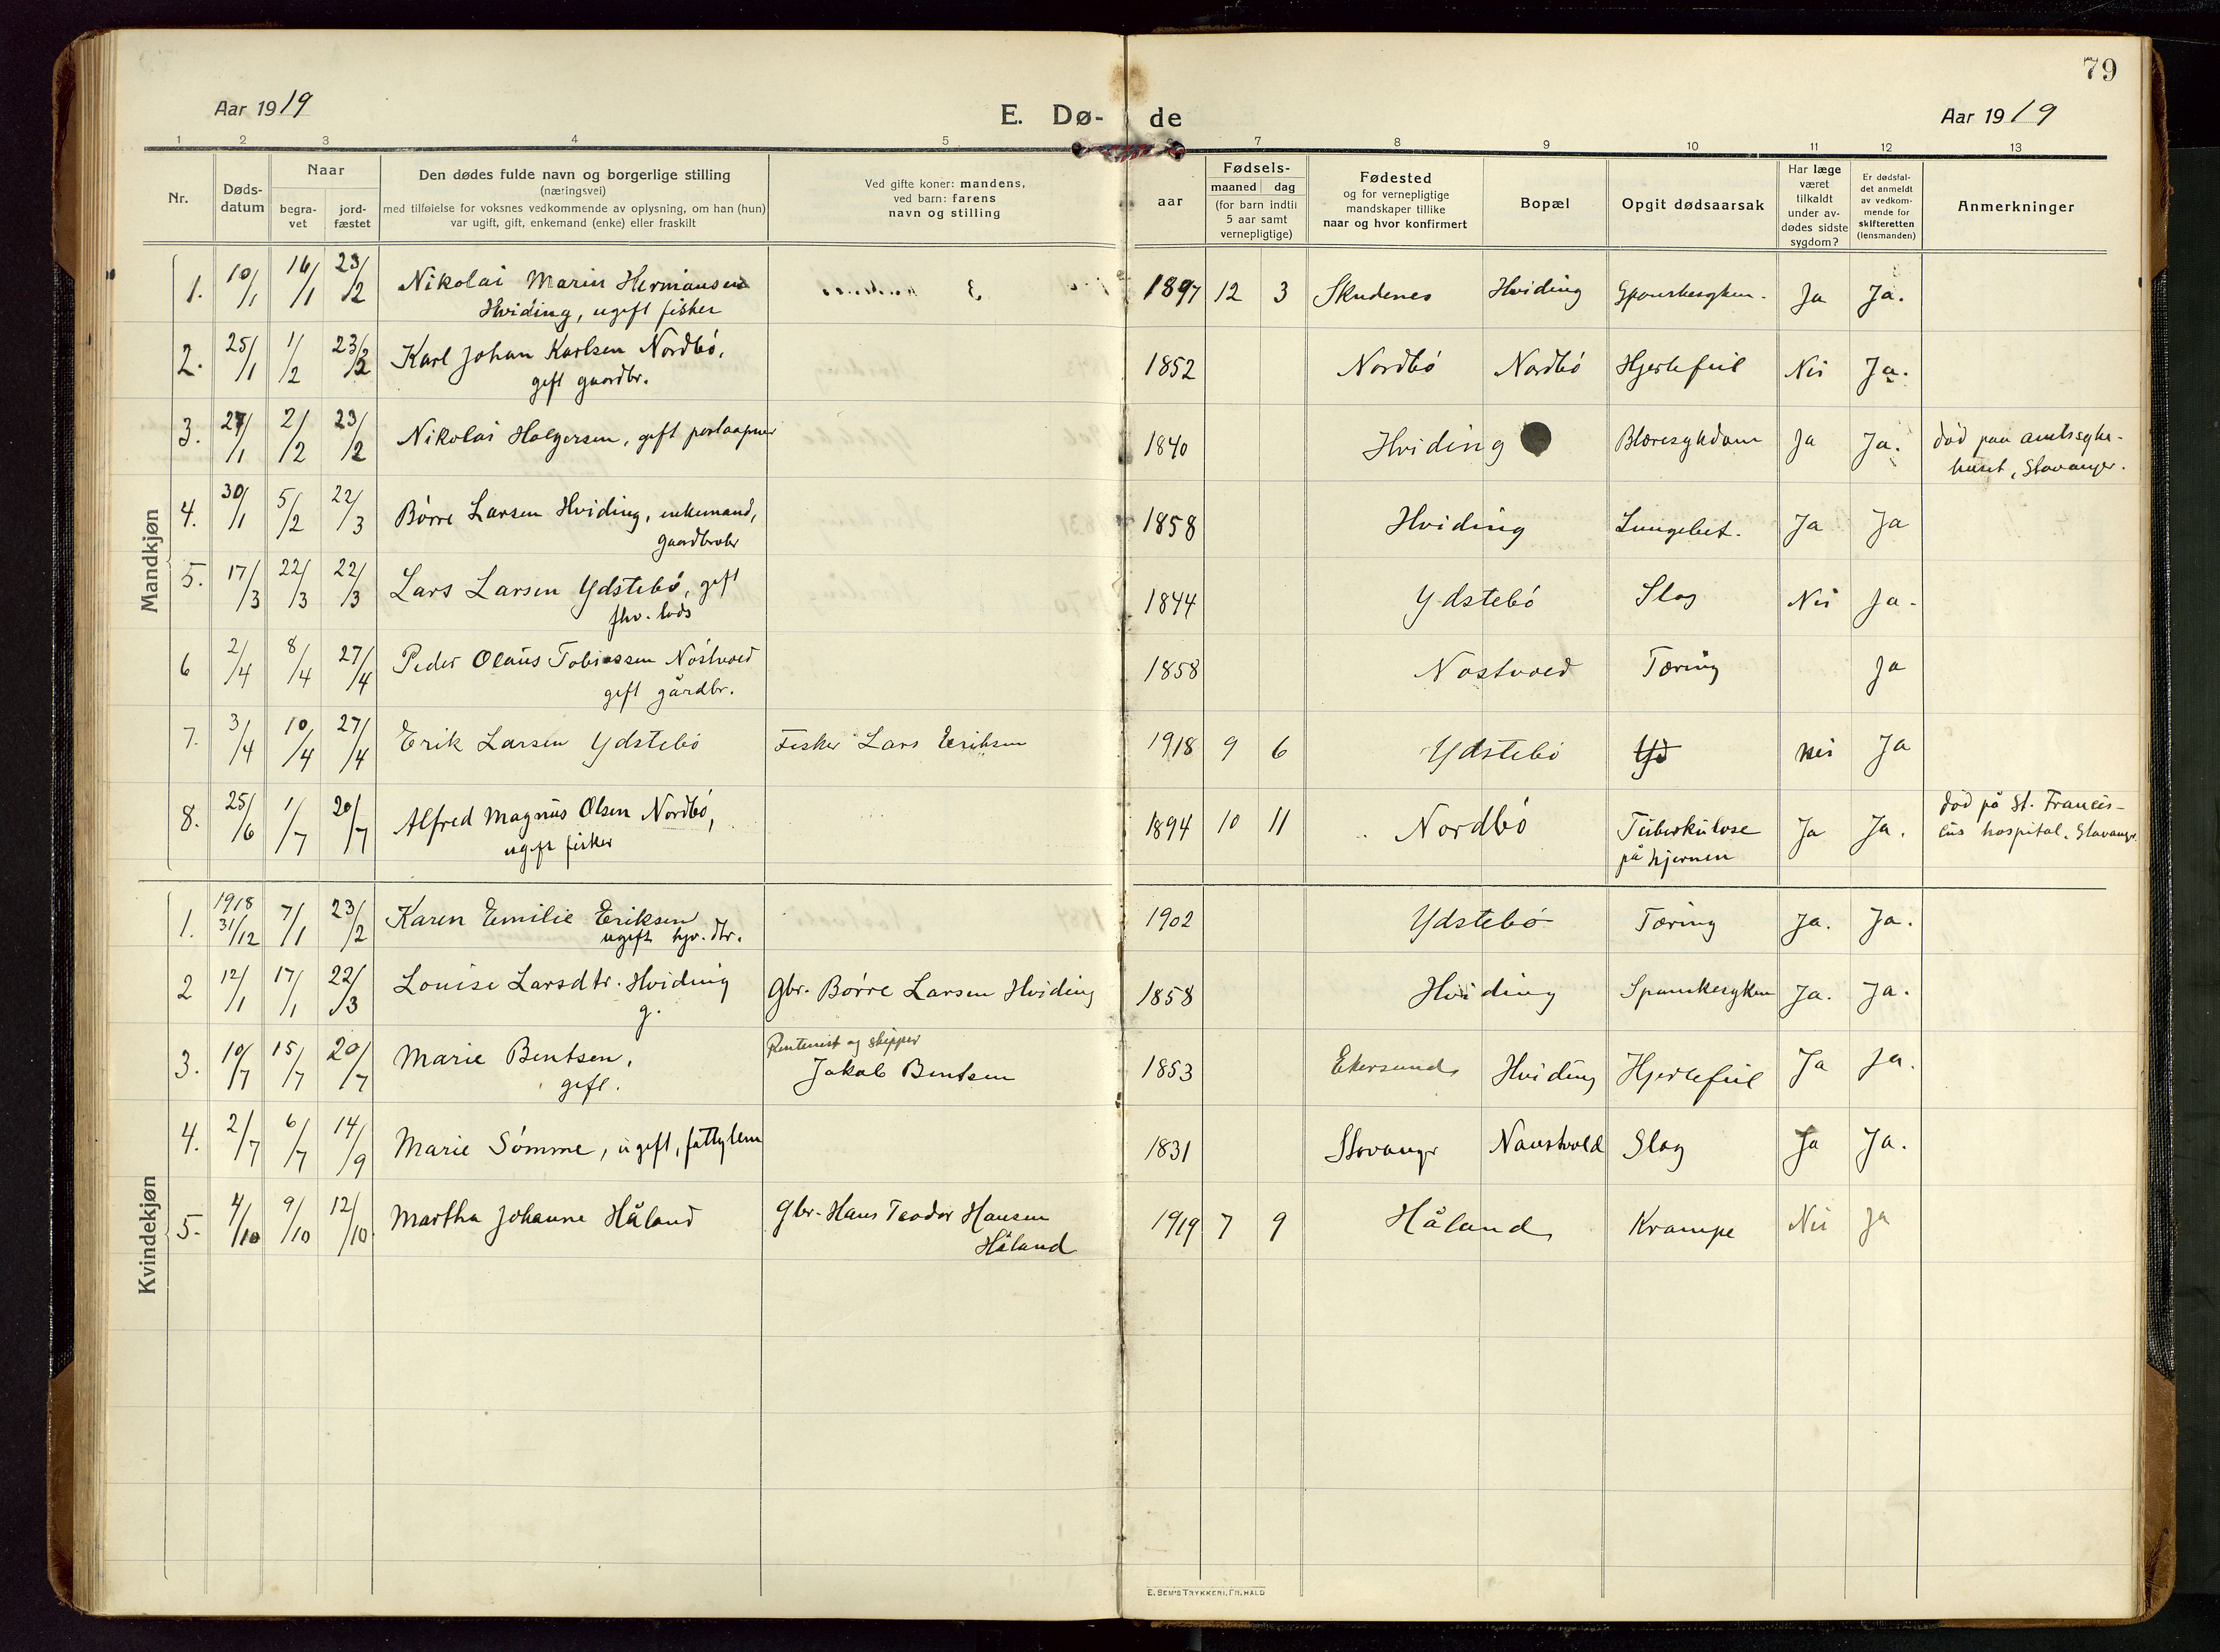 79
Aar 1919
E. Dø- de
Aar 1919
1 2 3 4 5 7 8 9 10 11 12 13
Nr.
Døds-
datum
Naar
begra-
vet
jord-
fæstet
Den dødes fulde navn og borgerlige stilling
(næringsvei)
med tilføielse for voksnes vedkommende av oplysning, om han (hun)
var ugift, gift, enkemand (enke) eller fraskilt
Ved gifte koner: mandens,
ved barn: farens
navn og stilling
Fødsels-
aar
maaned dag
(for barn indtil
5 aar samt
vernepligtige)
Fødested
og for vernepligtige
mandskaper tillike
naar og hvor konfirmert
Bopæl
Opgit dødsaarsak
Har læge
været
tilkaldt
under av-
dødes sidste
sygdom?
Er dødsfal-
det anmeldt
av vedkom-
mende for
skifteretten
(lensmanden)
Anmerkninger
Mandkjøn
1. 10/1 16/1 23/2 Nikolai Marin Hermansen 1897 12 3 Skudenes Hviding Spanskesyken. Ja Ja.
Hviding, ugift fisker
2. 25/1 1/2 23/2 Karl Johan Karlsen Nordbó, 1852 Nordbó Nordbó Hjertefeil Nei Ja.
gift gaardbr.
3. 27/1 2/2 23/2 Nikolai Holgersen, gift postaapner 1840 Hviding Blæresykdom Ja Ja. död paa amtssyke-
huset, Stavanger.
4. 30/1 5/2 22/3 Börre Larsen Hviding, enkemand, 1858 Hviding Lungebet. Ja Ja
gaardbruker
5. 17/3 22/3 22/3 Lars Larsen Ydstebó, gift 1844 Ydstebó Slag Nei Ja.
fhv. lods
6 2/4 8/4 27/4 Peder Olaus Tobiassen Nóstvoed 1858 Nostvoed Tæring Ja
gift gårdbr.
7. 3/4 10/4 27/4 Erik Larsen Ydstebó Fisker Lars Eriksen 1918 9 6 Ydstebó Nei Ja
8. 25/6 1/7 20/7 Alfred Magnus Olsen Nordbó, 1894 10 11 Nordbó Tuberkulose Ja Ja. död på St. Francis-
ugift fisker på hjernen cus hospital. Stavanger
Kvindekjøn
1. 1918 31/12 7/1 23/2 Karen Emilie Eriksen 1902 Ydstebó Tæring Ja. Ja.
ugift hjv. dtr.
2 12/1 17/1 22/3 Louise Larsdtr. Hviding Gbr. Börre Larsen Hviding 1858 Hviding Spanskesyken Ja. Ja.
g.
3. 10/7 15/7 20/7 Marie Bentsen, Rentenist og skipper 1853 Ekersund Hviding Hjertefeil Ja Ja.
gift. Jakob Bentsen
4. 2/7 6/7 14/9 Marie Sómme, ugift, fattiglem 1831 Stavanger Naustvold Slag Ja Ja.
5. 4/10 9/10 12/10 Martha Johanne Håland Gbr. Hans Teodor Hansen 1919 7 9 Håland Krampe Nei Ja
Håland
E. SEM'S TRYKKERI, FR.HALD